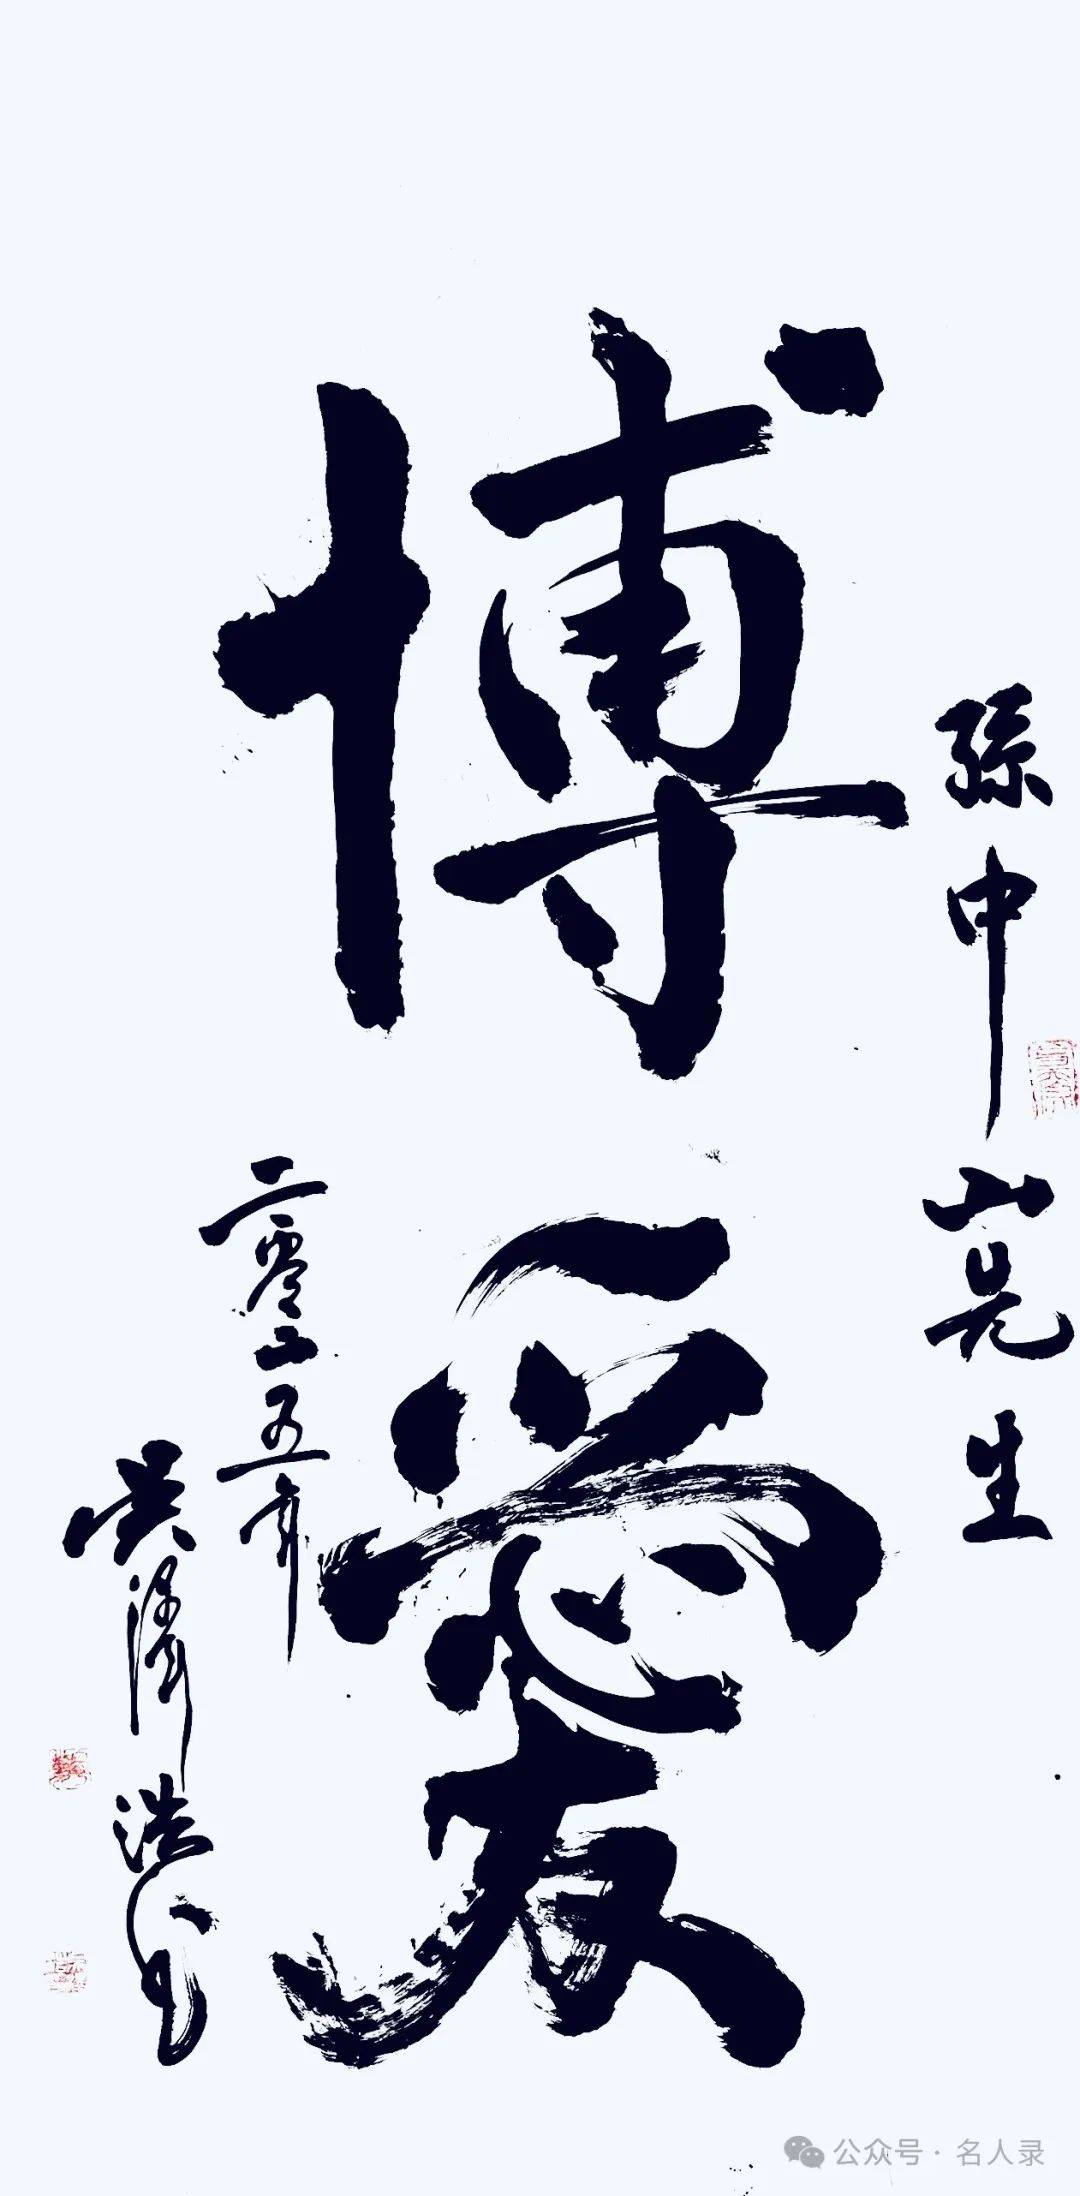 孫中山先生
博愛
二零二五年
吴澤浩书
公众号 · 名人录